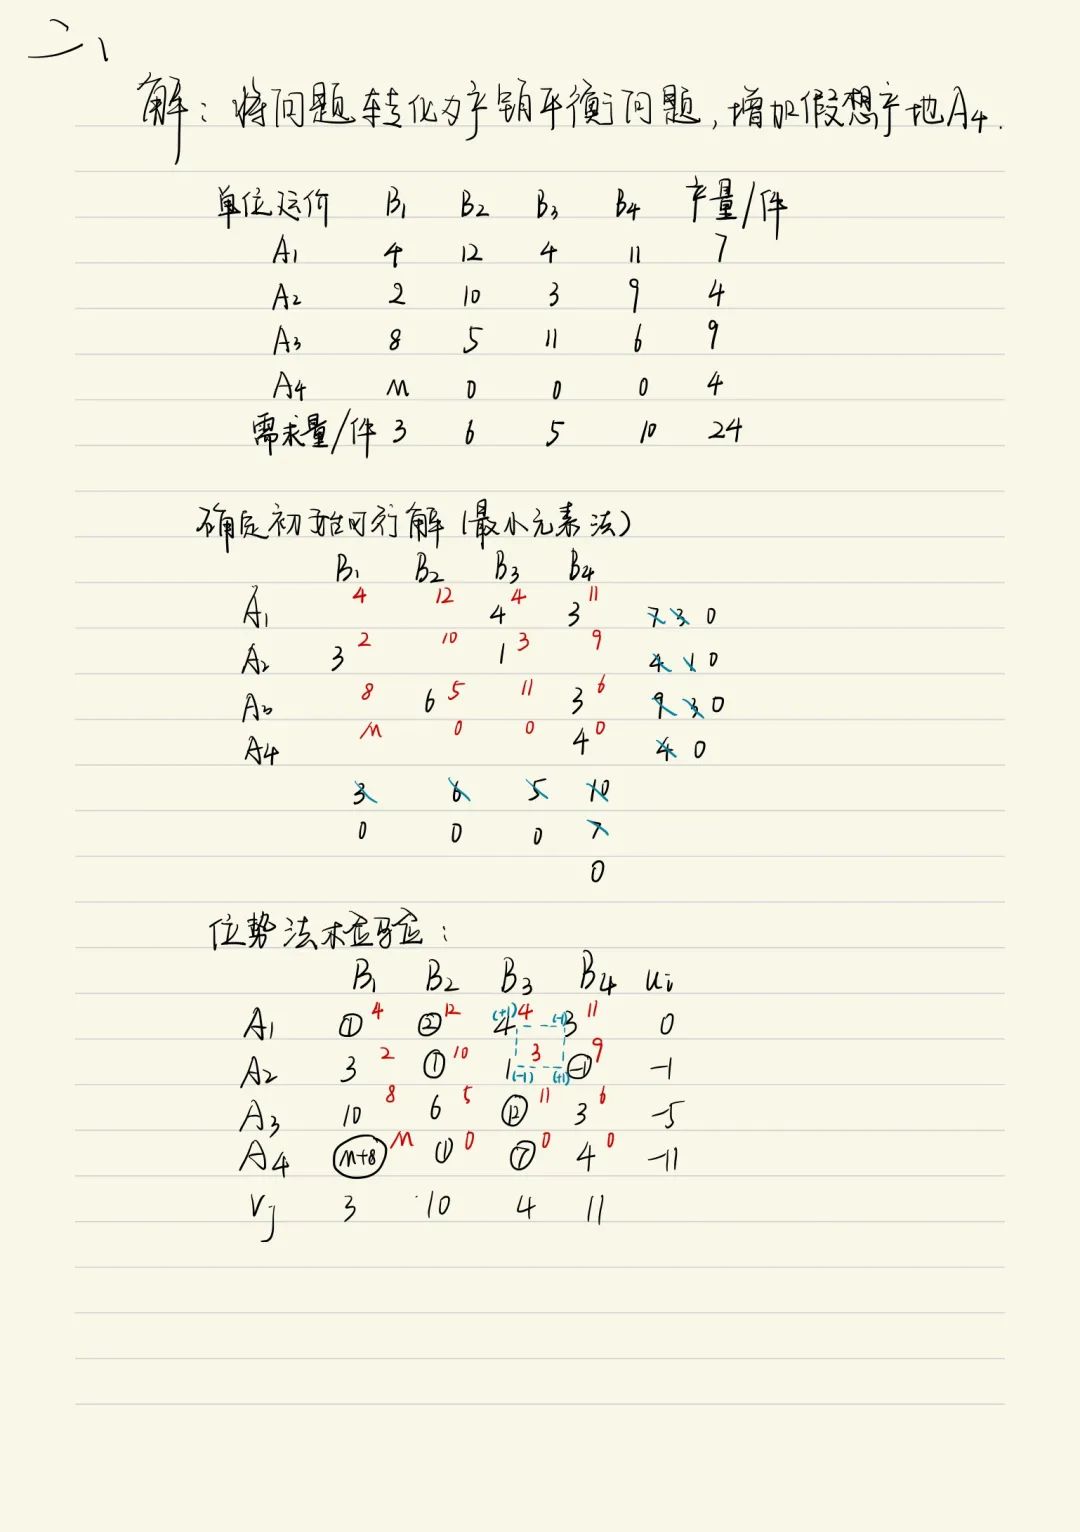 二、
解：将问题转化为产销平衡问题，增加假想产地A4.
单位运价 B1 B2 B3 B4 产量/件
A1 4 12 4 11 7
A2 2 10 3 9 4
A3 8 5 11 6 9
A4 M 0 0 0 4
需求量/件 3 6 5 10 24
确定初始可行解（最小元素法）
B1 B2 B3 B4
4 12 4 11
A1 4 3 7 3 0
2 10 3 9
A2 3 1 4 1 0
8 5 11 6
A3 6 3 9 3 0
M 0 0 0
A4 4 4 0
3 6 5 10
0 0 0 7
0
位势法检验：
B1 B2 B3 B4 ui
A1 ① 4 ② 12 (+1) 4 4 (-1) 3 11 0
A2 3 2 ① 10 1 (-1) 3 (+1) -1 9 -1
A3 10 8 6 5 ⑫ 11 3 6 -5
A4 M+8 M ① 0 ⑦ 0 4 0 -11
Vj 3 10 4 11